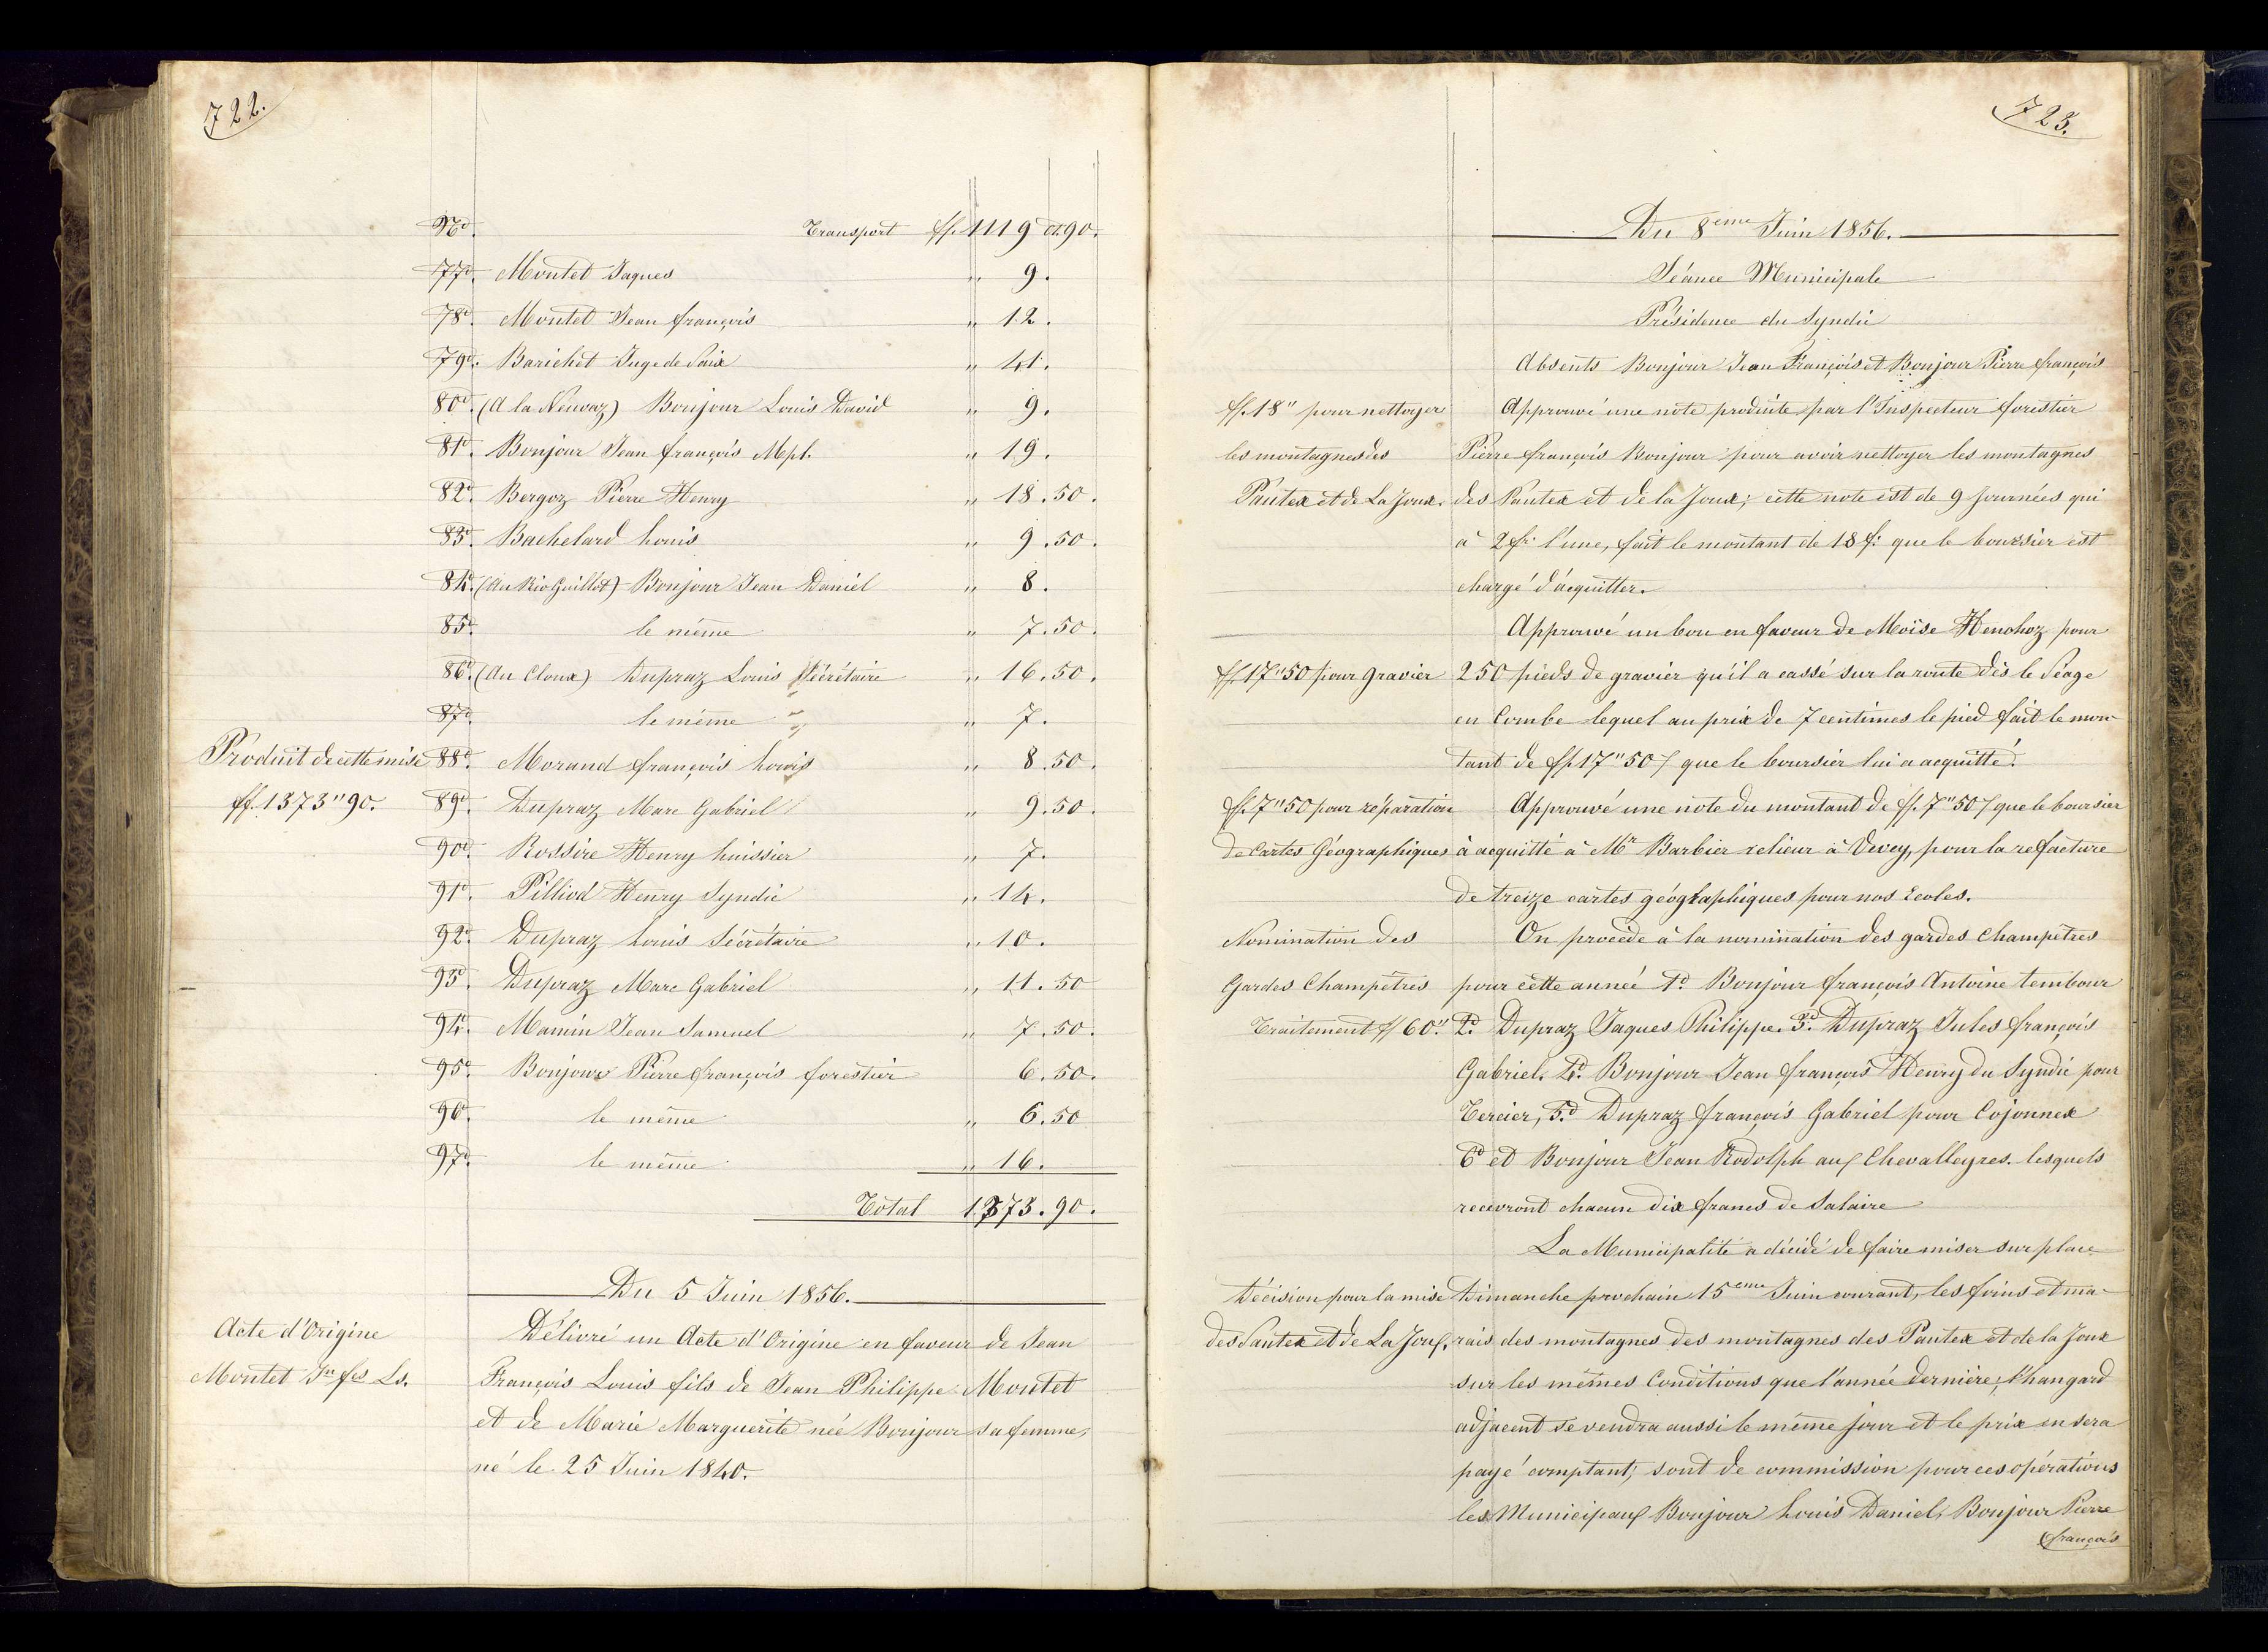 722.
No. Transport ff. 1119 ct 90.
77d. Montet Jaques " 9.
78d. Montet Jean françois " 12.
79d. Barichet Juge de Paix " 41.
80d. (A la Neuvaz) Bonjour Louis David " 9.
81d. Bonjour Jean françois Mpl. " 19.
82d. Bergoz Pierre Henry " 18.50.
83d. Bachelard Louis " 9.50.
84d. (Au Rio Guillet) Bonjour Jean Daniel " 8.
85d. le même " 7.50.
86d. (Au Cloux) Dupraz Louis Sécrétaire " 16.50.
87d. le même " 7.
Produit de cette mise 88d. Morand françois Louis " 8.50.
ff. 1373"90. 89d. Dupraz Marc Gabriel " 9.50.
90d. Rossire Henry huissier " 7.
91d. Pilliod Henry Syndic " 14.
92d. Dupraz Louis Sécrétaire " 10.
93d. Dupraz Marc Gabriel " 11.50
94d. Mamin Jean Samuel " 7.50.
95d. Bonjour Pierre françois forestier 6.50.
96d. le même " 6.50
97d. le même " 16.
Total 1373.90.
Du 5 Juin 1856.
Acte d'Origine
Montet Jn fçs Ls.
Délivré un Acte d'Origine en faveur de Jean
François Louis fils de Jean Philippe Montet
et de Marie Marguerite née Bonjour sa femme,
né le 25 Juin 1840.
723.
Du 8eme Juin 1856.
Séance Municipale
Présidence du Syndic
Absents Bonjour Jean François et Bonjour Pierre françois
ff. 18" pour nettoyer
les montagnes des
Pautex et de La Joux.
Approuvé une note produite par l'Inspecteur forestier
Pierre françois Bonjour pour avoir nettoyer les montagnes
des Pautex et de la Joux; cette note est de 9 Journées qui
à 2 fr. l'une, fait le montant de 18 f. que le boursier est
chargé d'acquitter.
Approuvé un bon en faveur de Moïse Henchoz pour
ff. 17"50 pour gravier 250 pieds de gravier qu'il a cassé sur la route dès le Péage
en Combe lequel au prix de 7 centimes le pied fait le mon-
tant de ff. 17"50 f que le boursier lui a acquitté.
ff. 7"50 pour réparation
de Cartes Géographiques
Approuvé une note du montant de ff. 7"50 f que le boursier
à acquitté à Mr Barbier relieur à Vevey, pour la refacture
de treize cartes géographiques pour nos Ecoles.
Nomination des
Gardes Champêtres
Traitement ff 60".
On procède à la nomination des gardes Champêtres
pour cette année 1d. Bonjour françois Antoine tembour
2d. Dupraz Jaques Philippe. 3d. Dupraz Jules françois
Gabriel. 4d. Bonjour Jean françois Henry du Syndic pour
Tercier, 5d. Dupraz françois Gabriel pour Cojonnex
6d et Bonjour Jean Rodolph aux Chevalleyres. lesquels
recevront chacun dix francs de Salaire
La Municipalité a décidé de faire miser sur place
Décision pour la mise
des Pautex et de La Joux.
Dimanche prochain 15eme Juin courant, les foins et ma-
rais des montagnes des montagnes des Pautex et de la Joux
sur les mêmes Conditions que l'année dernière; l'hangard
adjacent se vendra aussi le même jour et le prix en sera
payé comptant; sont de commission pour ces opérations
les Municipaux Bonjour Louis Daniel, Bonjour Pierre
françois